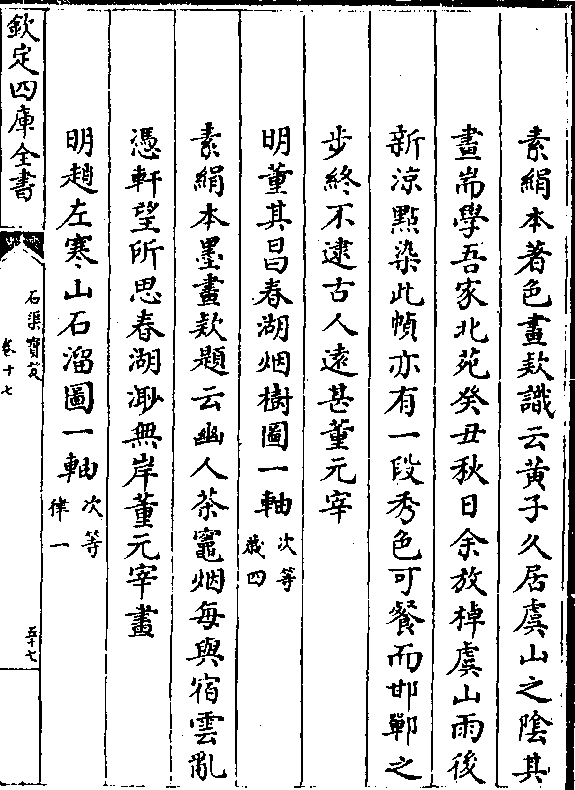 素絹本著色畫欵識云黄子久居虞山之陰其
畫耑學吾家北苑癸丑秋日余放棹虞山雨後
新涼點染此幀亦有一段秀色可餐而邯鄲之
步終不逮古人遠甚董元宰
明董其昌春湖烟樹圖一軸次等
歲四
素絹本墨畫欵題云幽人茶竈烟每與宿雲亂
憑軒望所思春湖渺無岸董元宰畫
明趙左寒山石溜圖一軸次等
律一
欽定四庫全書
石渠寶笈
卷十七
五十七